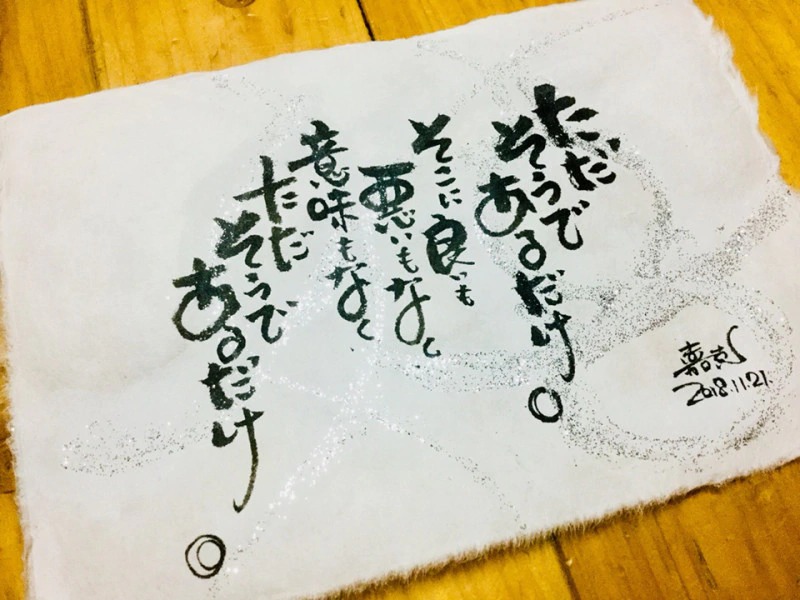 ただ
そうで
あるだけ。
そこに
良いも
悪いもなく
意味もなく
ただ
そうで
あるだけ。
2018.11.21.